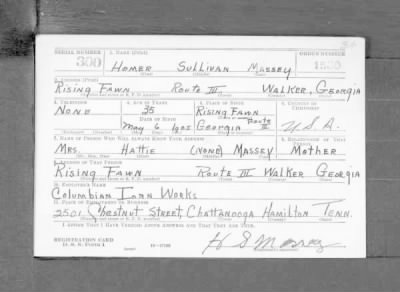 SERIAL NUMBER 1. NAME (Print) ORDER NUMBER
300 HOMER SULLIVAN MASSEY 1530
(First) (Middle) (Last)
2. ADDRESS (Print)
RISING FAWN ROUTE III WALKER, GEORGIA
3. TELEPHONE 4. AGE IN YEARS 5. PLACE OF BIRTH 6. COUNTRY OF CITIZENSHIP
NONE 35 RISING FAWN
DATE OF BIRTH ROUTE III
MAY 6 1905 GEORGIA U.S.A.
7. NAME OF PERSON WHO WILL ALWAYS KNOW YOUR ADDRESS 8. RELATIONSHIP OF THAT PERSON
MRS. HATTIE (NONE) MASSEY MOTHER
(Mr., Mrs., Miss) (First) (Middle) (Last)
9. ADDRESS OF THAT PERSON
RISING FAWN ROUTE III WALKER GEORGIA
10. EMPLOYER'S NAME
COLUMBIAN IRON WORKS
11. PLACE OF EMPLOYMENT OR BUSINESS
2501 CHESTNUT STREET, CHATTANOOGA HAMILTON TENN.
I AFFIRM THAT I HAVE VERIFIED ABOVE ANSWERS AND THAT THEY ARE TRUE.
REGISTRATION CARD
D. S. S. FORM 1 H S Massey